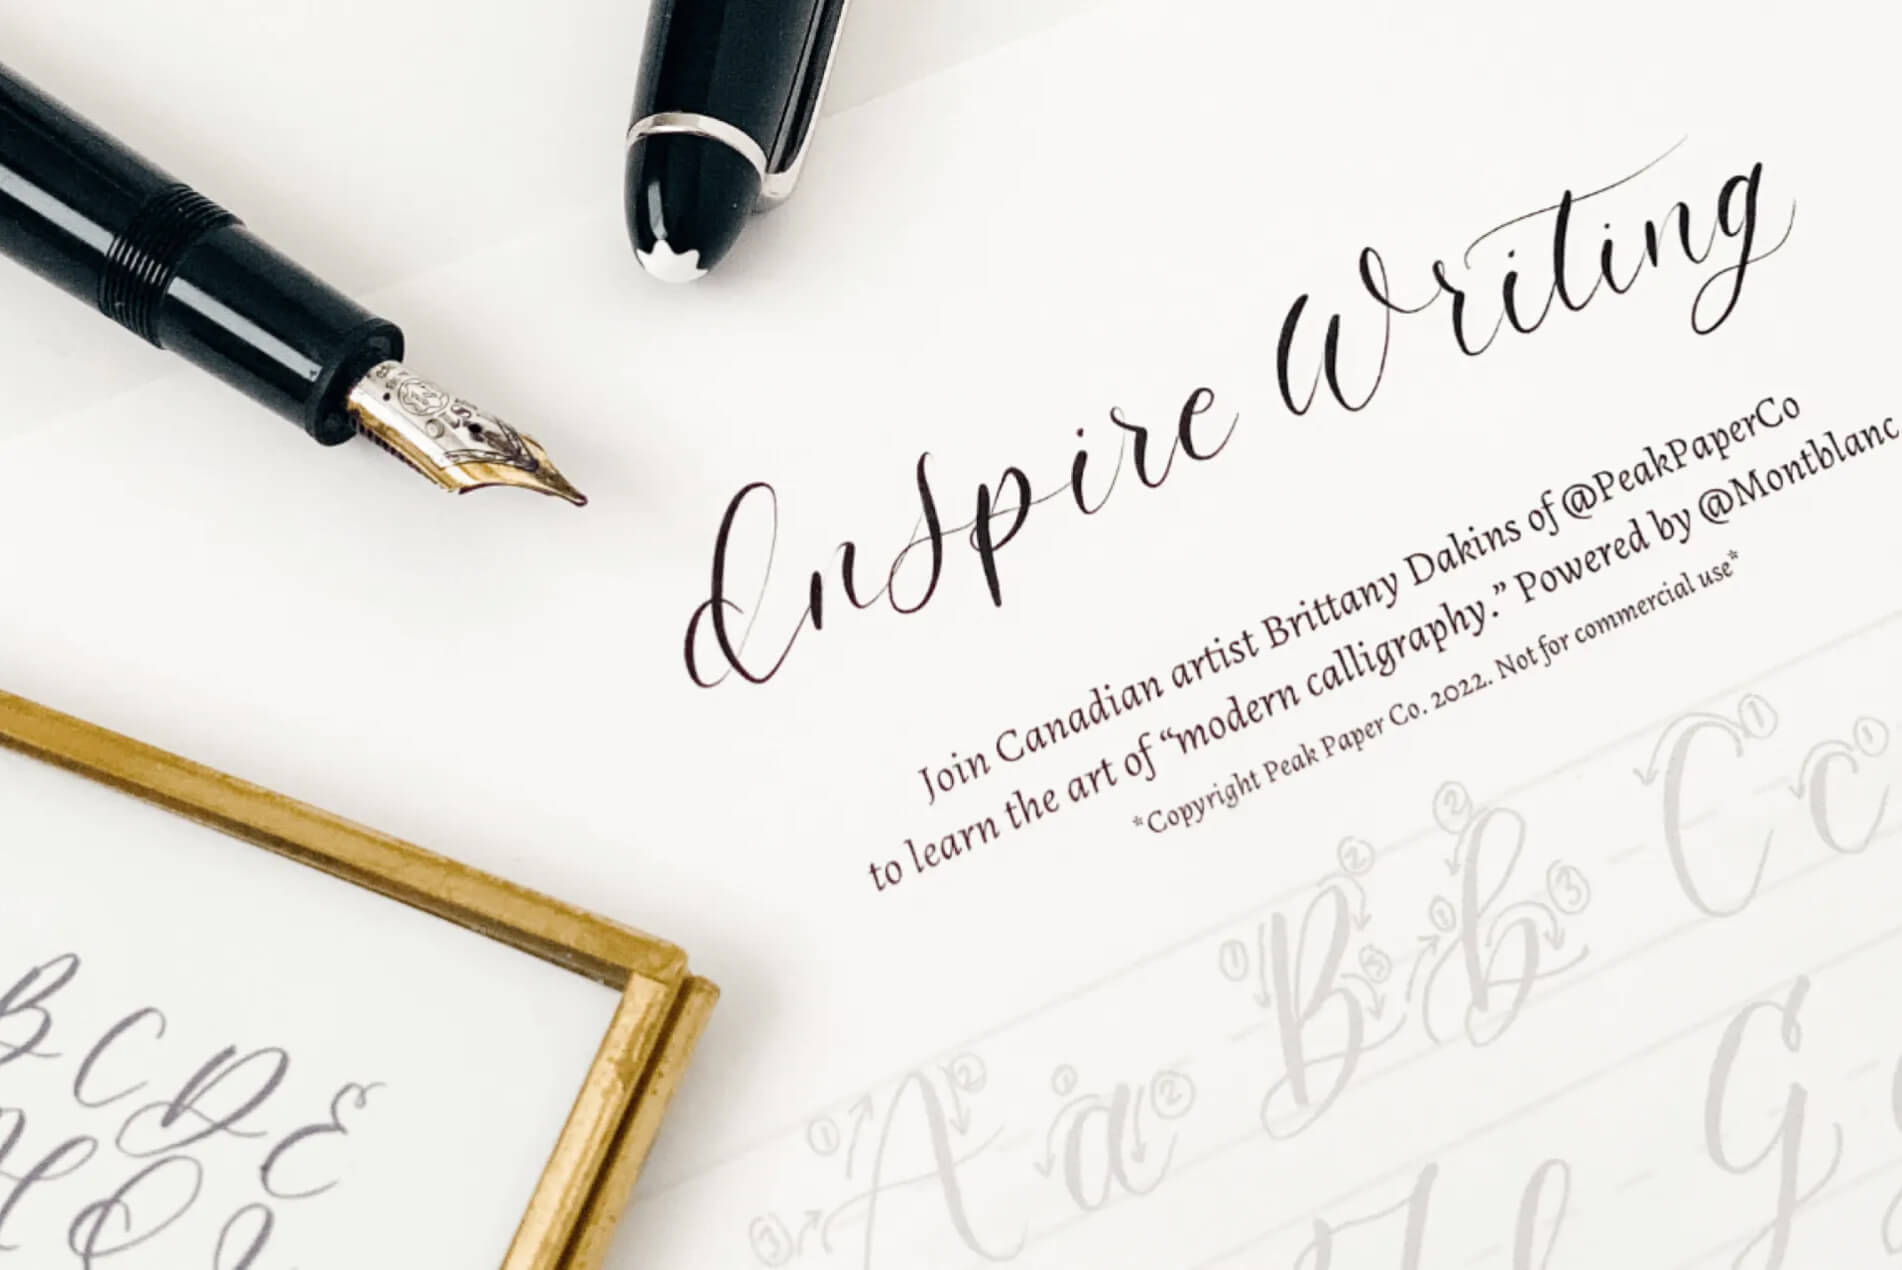 Inspire Writing
Join Canadian artist Brittany Dakins of @PeakPaperCo
to learn the art of “modern calligraphy.” Powered by @Montblanc
*Copyright Peak Paper Co. 2022. Not for commercial use*
1 2 3 A 1 2 a 1 2 3 B 1 2 3 b 1 C 1 c
G
B C D E